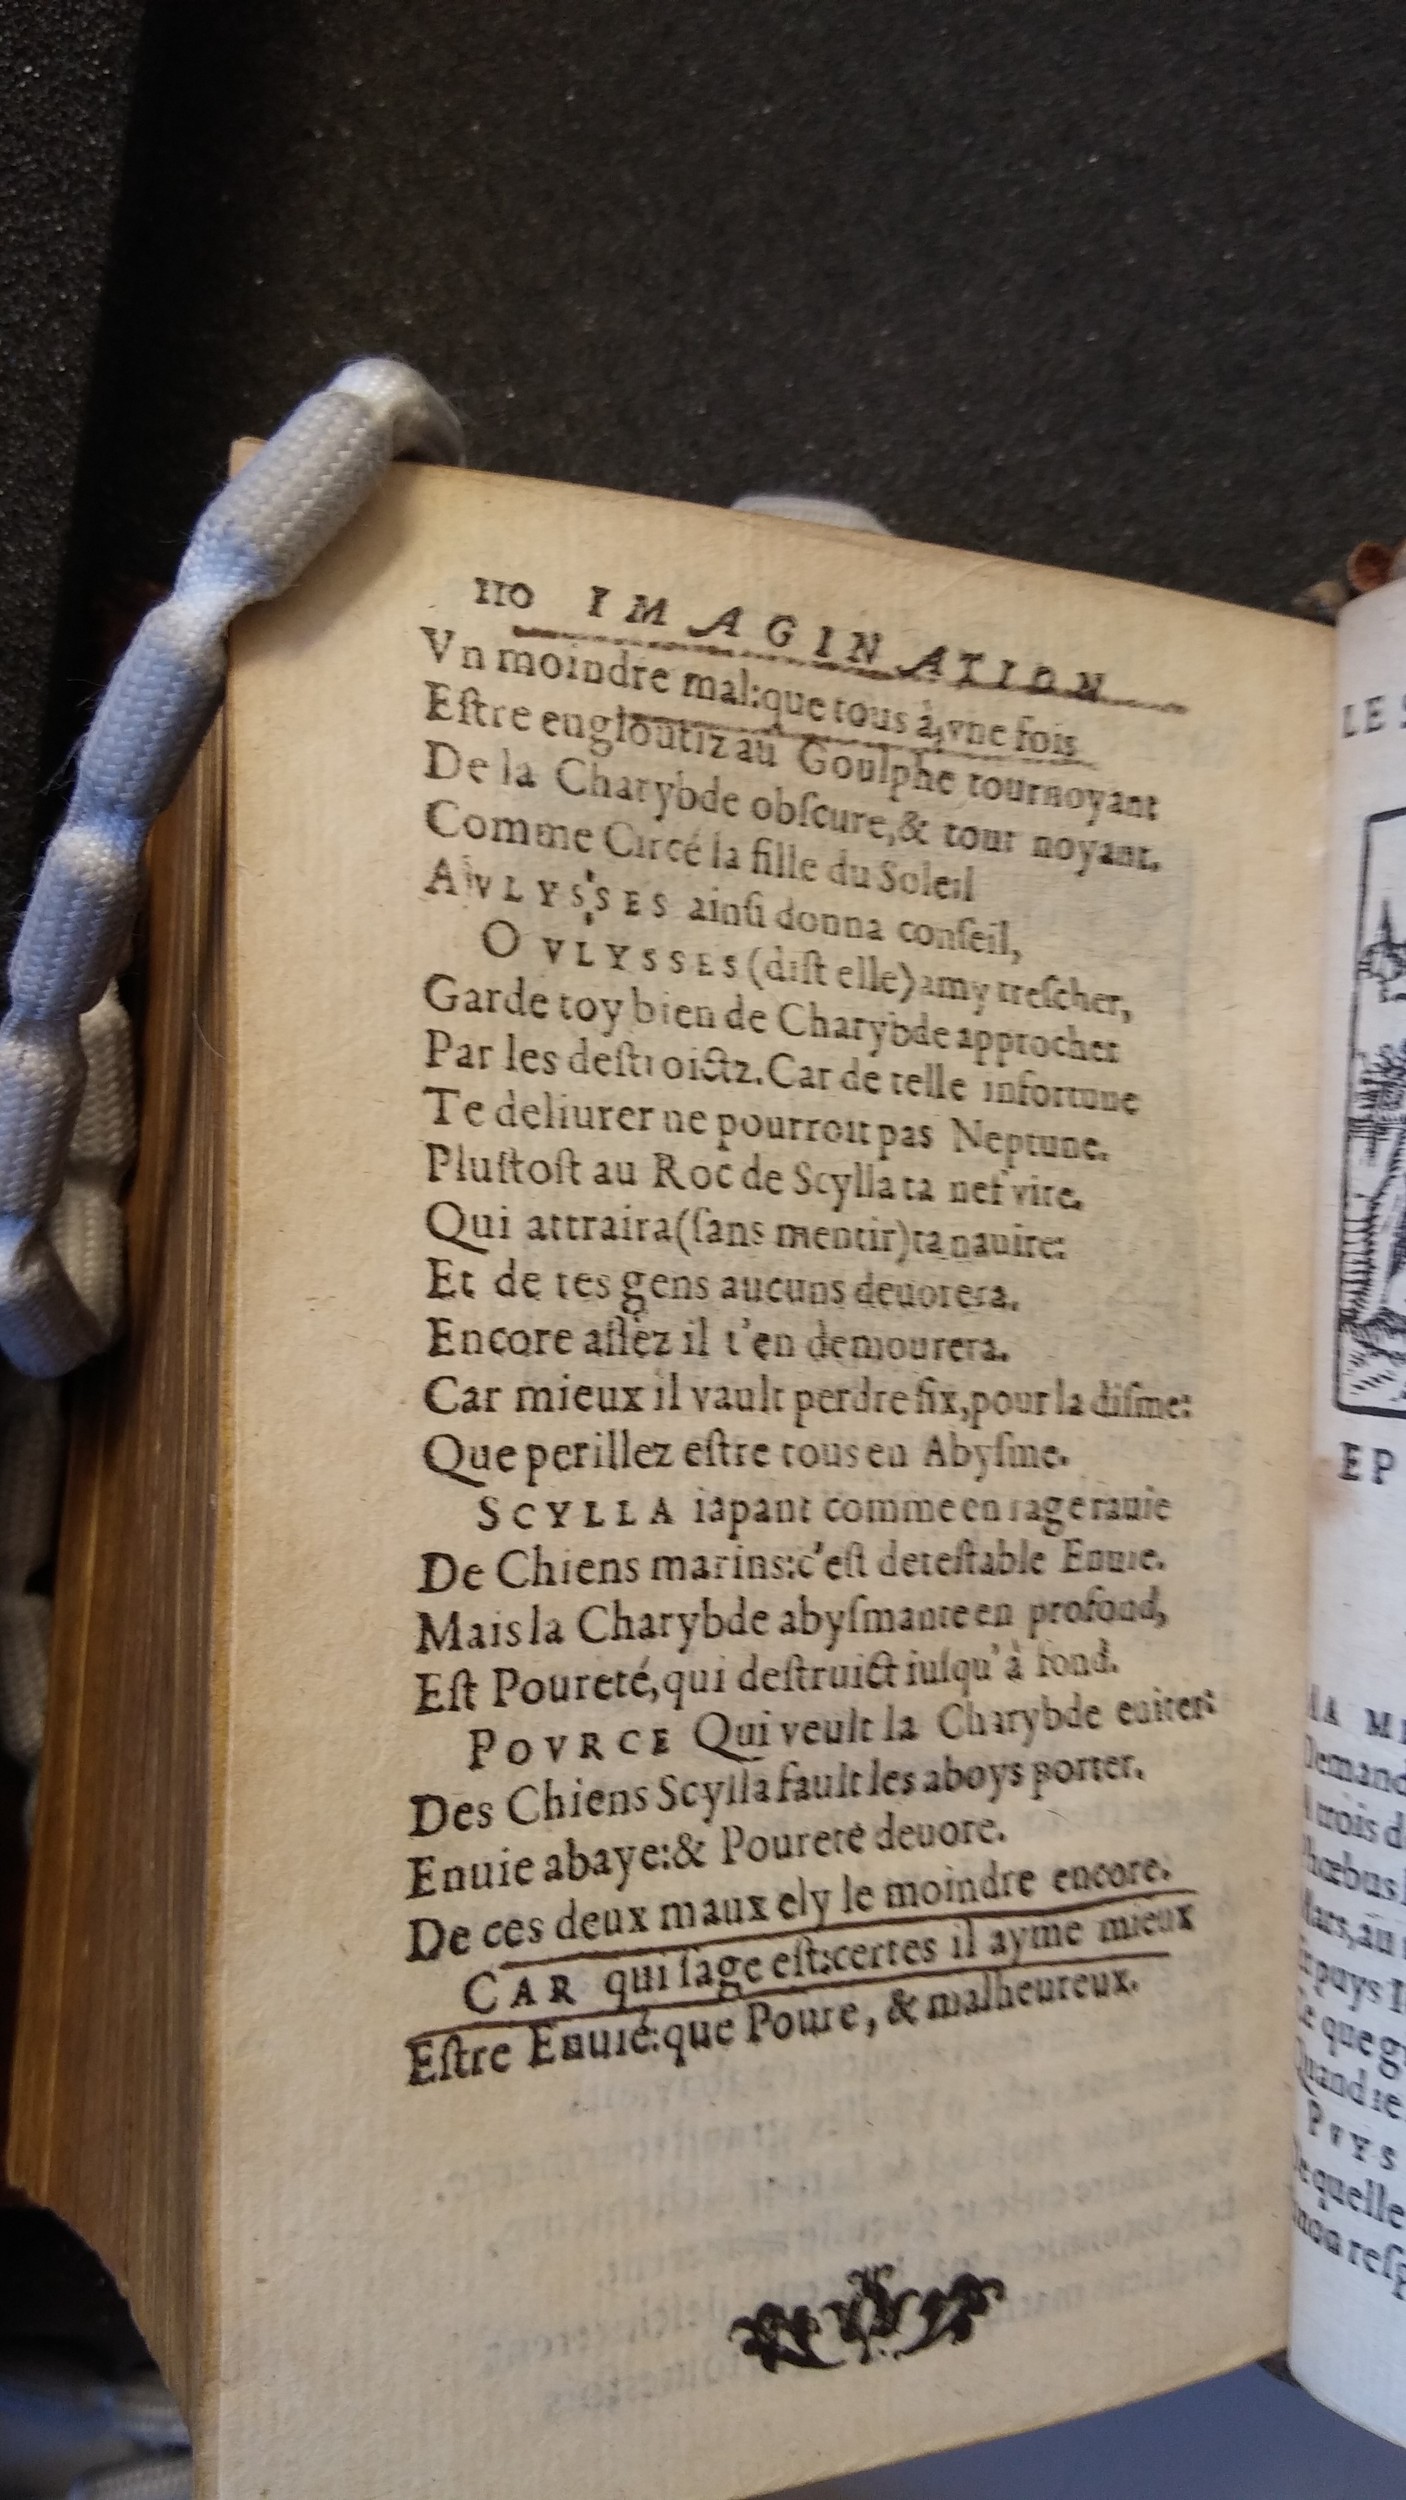 110 IMAGINATION
Vn moindre mal:que tous à vne fois
Eſtre engloutiz au Goulphe tournoyant
De la Charybde obſcure,& tout noyant.
Comme Circé la fille du Soleil
A VLYSSES ainſi donna conſeil,
O VLYSSES (diſt elle) amy treſcher,
Garde toy bien de Charybde approcher
Par les deſtroictz. Car de telle infortune
Te deliurer ne pourroit pas Neptune.
Pluſtoſt au Roc de Scylla ta nef vire.
Qui attraira (ſans mentir) ta nauire:
Et de tes gens aucuns deuorera.
Encore aſſez il t'en demourera.
Car mieux il vault perdre ſix, pour la diſme:
Que perillez eſtre tous en Abyſme.
SCYLLA iapant comme en rage rauie
De Chiens marins:c'eſt deteſtable Enuie.
Mais la Charybde abyſmante en profond,
Eſt Poureté, qui deſtruict iuſqu'à fond.
POVRCE Qui veult la Charybde euiter:
Des Chiens Scylla fault les aboys porter.
Enuie abaye:& Poureté deuore.
De ces deux maux ely le moindre encore.
CAR qui ſage eſt:certes il ayme mieux
Eſtre Enuié:que Poure, & malheureux.
LE S
EP
MA
Demand
A trois d
Phœbus
Mars, au
puys
que g
Quand ie
PVYS
De quelle
non reſp